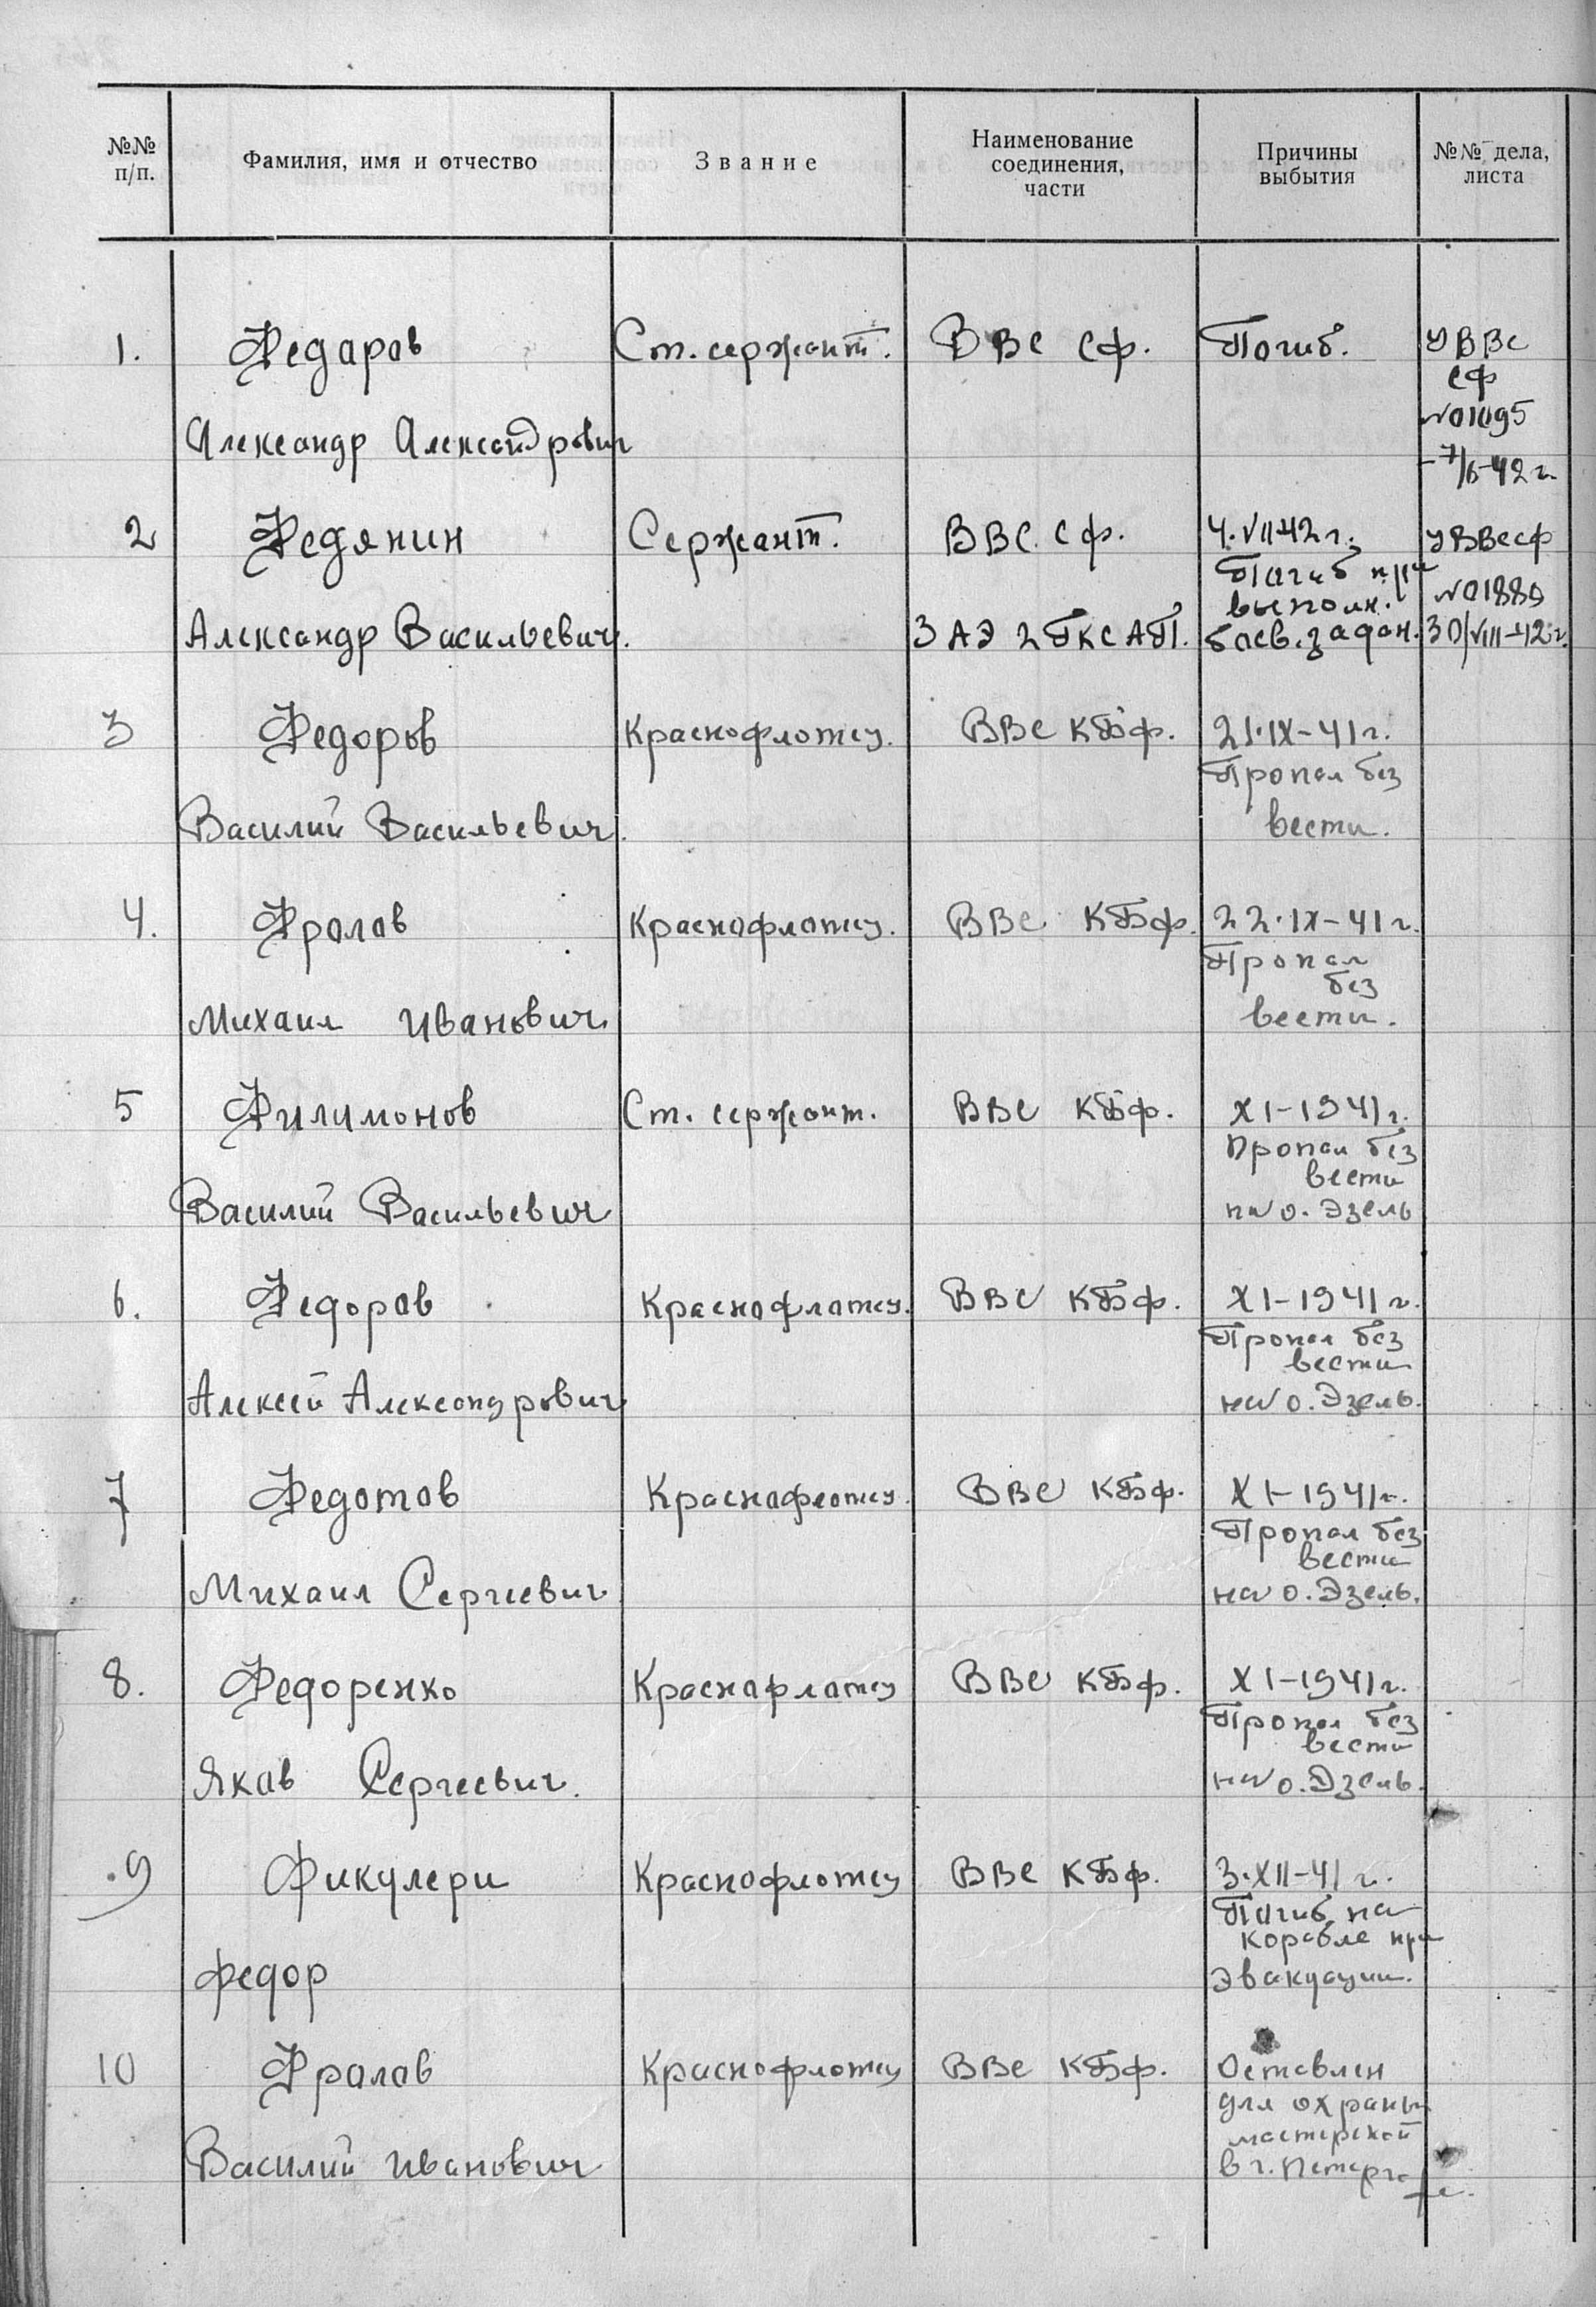 №№ п/п. Фамилия, имя и отчество Звание Наименование соединения, части Причины выбытия №№ дела, листа
1. Федаров Ст. сержант. ВВС СФ. Погиб. УВВС
СФ
Александр Александрович №01095
-7/6-42 г.
2 Федянин Сержант. ВВС СФ. 4.VII-42 г. УВВСсф
Погиб при
выполн. №01889
Александр Васильевич. 3 АЭ 2 ГКСАП. боев. задан. 30/VIII-42 г.
3 Федоров Краснофлотец. ВВС КБФ. 21.IX-41 г.
Пропал без
Василий Васильевич. вести.
4. Фролов Краснофлотец. ВВС КБФ. 22.IX-41 г.
Пропал
без
Михаил Иванович. вести.
5 Филимонов Ст. сержант. ВВС КБФ. XI-1941 г.
Пропал без
вести
Василий Васильевич на о. Эзель
6. Федоров Краснофлотец. ВВС КБФ. XI-1941 г.
Пропал без
вести
Алексей Александрович на о. Эзель.
7 Федотов Краснофлотец. ВВС КБФ. XI-1941 г.
Пропал без
вести
Михаил Сергеевич на о. Эзель.
8. Федоренко Краснофлотец ВВС КБФ. XI-1941 г.
Пропал без
вести
Яков Сергеевич. на о. Эзель.
9 Фикулери Краснофлотец ВВС КБФ. 3.XII-41 г.
Погиб на
корабле при
Федор эвакуации.
10 Фролов Краснофлотец ВВС КБФ. Оставлен
для охраны
мастерской
Василий Иванович в г. Петерго
фе.